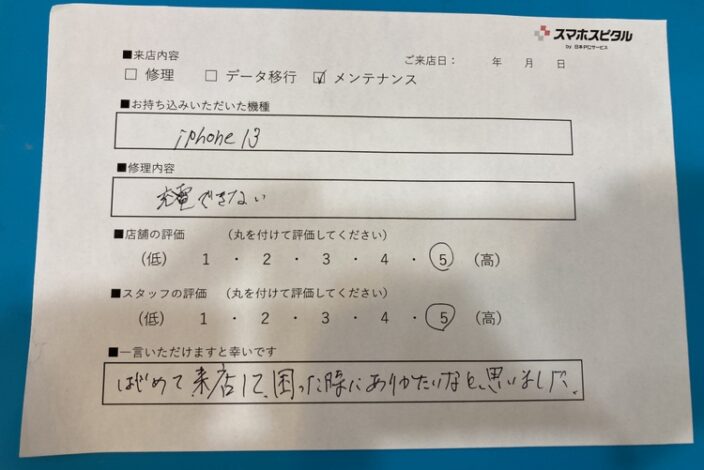 スマホスピタル
by 日本PCサービス
■来店内容
ご来店日： 年 月 日
□ 修理 □ データ移行 ☑ メンテナンス
■お持ち込みいただいた機種
iphone 13
■修理内容
充電できない
■店舗の評価 （丸を付けて評価してください）
（低） 1 ・ 2 ・ 3 ・ 4 ・ 5 （高）
■スタッフの評価 （丸を付けて評価してください）
（低） 1 ・ 2 ・ 3 ・ 4 ・ 5 （高）
■一言いただけますと幸いです
はじめて来店して、困った時にありがたいなと、思いました。